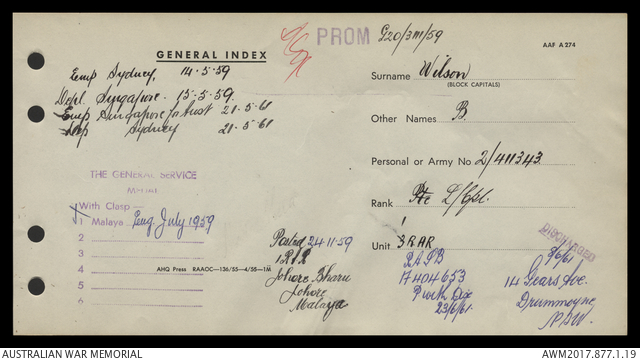 PROM G20/3M/59
AAF A 274
GENERAL INDEX
Emp Sydney, 14-5-59
Depl. Singapore. 15-5-59.
Emp Singapore for Aust 21-5-61
Dep Sydney 21-5-61
Surname Wilson
(BLOCK CAPITALS)
Other Names B.
Personal or Army No 2/411343
Rank Pte L/Cpl.
Unit 3 RAR
THE GENERAL SERVICE
MEDAL
With Clasp —
1 Malaya Peng. July 1959
2
3
4
5
6
AHQ Press RAAOC—136/55—4/55—1M
Posted 24 11-59
1 R
Johore Bharu
Johore
Malaya
17404653
23/6/61.
DISCHARGED
14 Gears Ave.
Drummoyne
NSW.
AUSTRALIAN WAR MEMORIAL
AWM2017.877.1.19